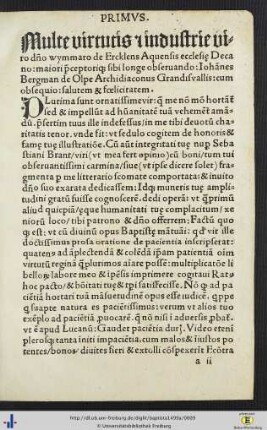 PRIMVS.
Multe virtutis ⁊ industrie vi⸗
ro dño wymmaro de Ercklens Aquensis ecclesię Deca
no: maiori p̄ceptoriq̨ sibi longe obseruando: Iohānes
Bergman de Olpe Archidiaconus Grandisvallis: cum
obsequio: salutem & fœlicitatem.
PLurima sunt ornatissime vir: q̄ me nō mō hortāt
sed & impellūt ad hūanitatē tuā vehemēter
p̄sertim tuus ille indefessus/in me tibi deuotū cha
ritatis tenor. vnde fit: vt sedulo cogitem de honoris &
famę tuę illustratiōe. Cū aūt integritati tuę nup Seba
stiani Brant/viri (vt mea fert opinio) cū boni/tum tui
obseruantissimi carmina/siue (vt ipse dicere solet) fra
gmenta p me litteratio scomate comportata: & inuito
dño suo exarata dedicassem: Idq̨ muneris tuę ampli
tudini gratū fuisse cognoscerē. dedi operā: vt q̄primū
aliud quicpiā/quę humanitati tuę complacitum/ &
nioris loco/tibi patrono & dño offerrem: Factū quo
q̨ est: vt cū diuinū opus Baptistę mātuani: qđ vir ille
doctissimus prosa oratione de paciencia inscripserat:
quatens ad āplectendā & colēdā ipam patientiā oīm
virtutū reginā q̄plurimos alicere posset: multiplicatōe li
bello⁊ & labore meo & ipēsis imprimere cogitaui Rat
hoc pacto/& hōitati tuę & tpi satisfecisse. Nō q̨ ad pa
ciētiā hortari tuā māsuetudinē opus esse iudicē. q̄ppe
q̨ suapte natura es pacientissimus: verum vt alios tuo
exēplo ad paciētiā puocarē. q̄ nō nisi ī aduersis pbat̄
vt ē apud Lucanū: Gaudet paciētia duř. Video etenī
plerosq̨ tanta initi impaciētia: cum malos & iniustos po
tentes/bonos/diuites fieri & extolli cōspexerīt Ecōtra
a ii
http://dl.ub.uni-freiburg.de/diglit/baptista1499a/0009
© Universitätsbibliothek Freiburg